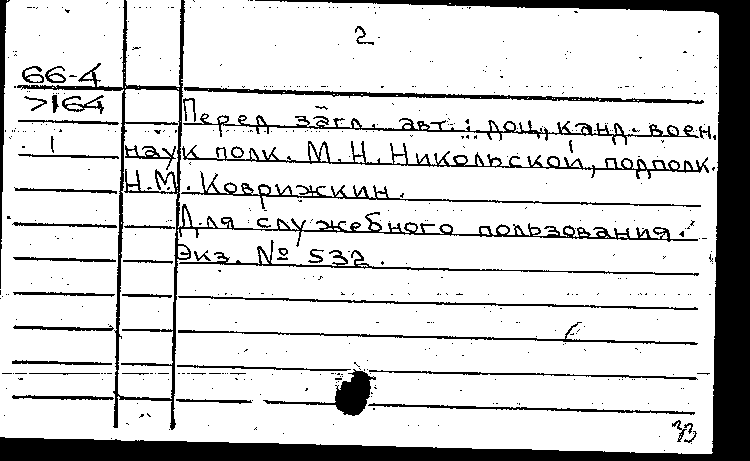 2
66-4
>164
Перед загл. авт.: доц., канд. воен.
1
наук полк. М.Н. Никольской, подполк.
Н.М. Коврижкин.
Для служебного пользования.
Экз. № 532.
33